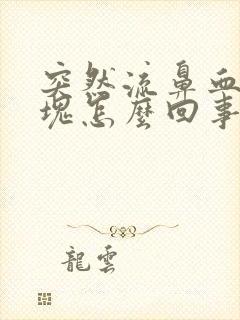 突然流鼻血
塊怎麼回事
龍雲